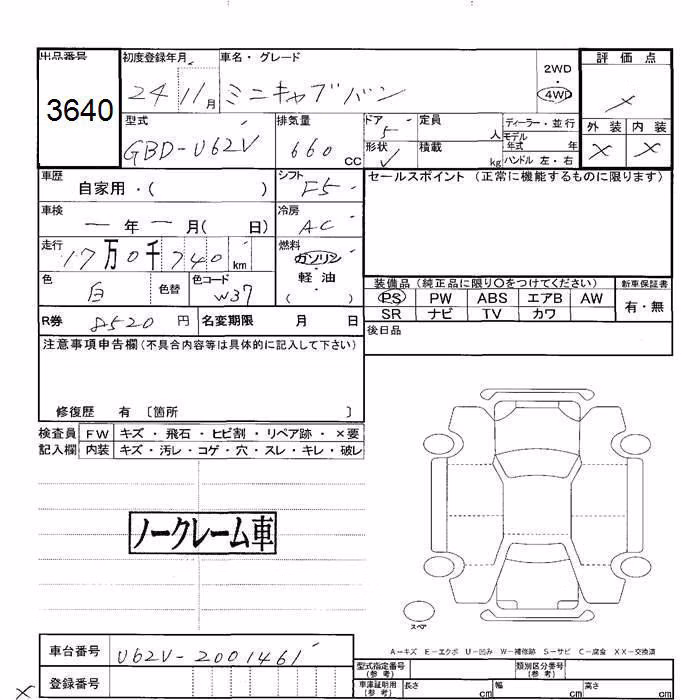 出品番号 初度登録年月 車名・グレード 2WD 評価点
3640 24 11月 ミニキャブバン 4WD ×
型式 排気量 ドア 定員 ディーラー・並行 外装 内装
GBD-U62V 660 CC 5 人 モデル年式 年 × ×
形状 積載 kg ハンドル 左・右
車歴 シフト セールスポイント (正常に機能するものに限ります)
自家用・( ) F5
車検 冷房
ー年ー月( 日) AC
走行 燃料
17万0千740km ガソリン
色 色替 色コード 軽油 装備品(純正品に限り〇をつけてください) 新車保証書
白 W37 ( ) PS PW ABS エアB AW 有・無
SR ナビ TV カワ
R券 8520円 名変期限 月 日 後日品
注意事項申告欄(不具合内容等は具体的に記入して下さい)
修復歴 有 〔箇所 〕
検査員 FW キズ・飛石・ヒビ割・リペア跡・×要
記入欄 内装 キズ・汚レ・コゲ・穴・スレ・キレ・破レ
ノークレーム車
スペア
A-キズ E-エクボ U-凹み W-補修跡 S-サビ C-腐食 XX-交換済
車台番号 U62V-2001461 型式指定番号(参考) 類別区分番号(参考)
登録番号 車庫証明用(参考) 長さ cm 幅 cm 高さ cm
×